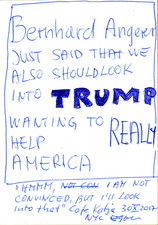 Bernhard Angerer
JUST SAID THAT WE
ALSO SHOULD LOOK
INTO TRUMP
WANTING TO REALLY
HELP
AMERICA
"HMMM, NOT CON I AM NOT
CONVINCED, BUT I'LL LOOK
into that" Cafe Katja 30 X 2017
NYC